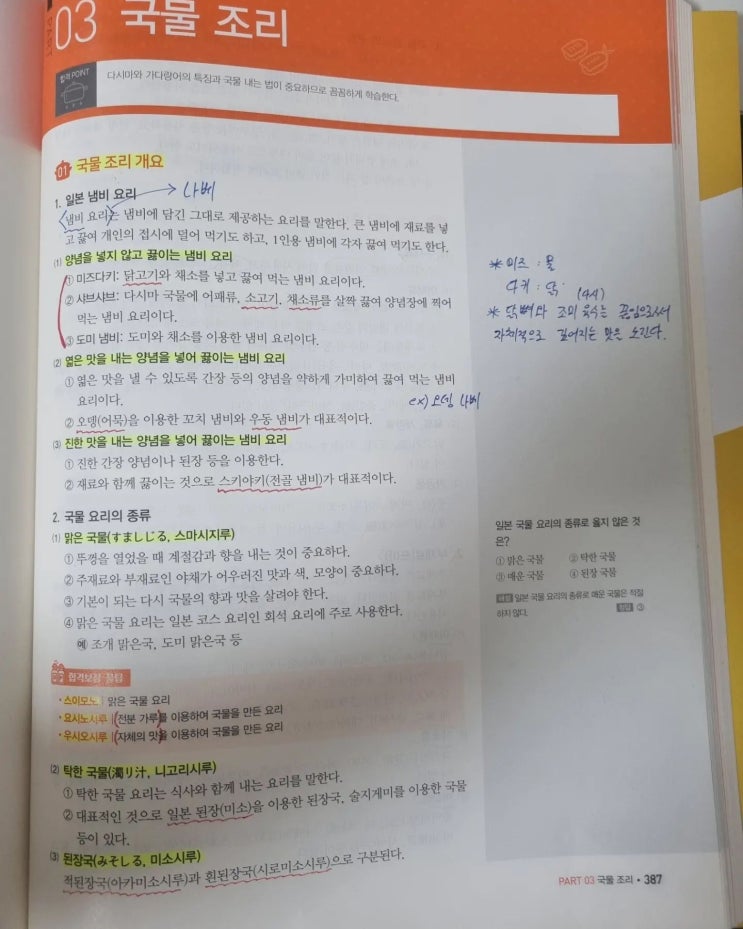 PART
03 국물 조리
합격 POINT
다시마와 가다랑어의 특징과 국물 내는 법이 중요하므로 꼼꼼하게 학습한다.
01 국물 조리 개요
1. 일본 냄비 요리 → 나베
냄비 요리는 냄비에 담긴 그대로 제공하는 요리를 말한다. 큰 냄비에 재료를 넣
고 끓여 개인의 접시에 덜어 먹기도 하고, 1인용 냄비에 각자 끓여 먹기도 한다.
(1) 양념을 넣지 않고 끓이는 냄비 요리
① 미즈다키: 닭고기와 채소를 넣고 끓여 먹는 냄비 요리이다.
② 샤브샤브: 다시마 국물에 어패류, 소고기, 채소류를 살짝 끓여 양념장에 찍어
먹는 냄비 요리이다.
③ 도미 냄비: 도미와 채소를 이용한 냄비 요리이다.
(2) 엷은 맛을 내는 양념을 넣어 끓이는 냄비 요리
① 엷은 맛을 낼 수 있도록 간장 등의 양념을 약하게 가미하여 끓여 먹는 냄비
요리이다.
② 오뎅(어묵)을 이용한 꼬치 냄비와 우동 냄비가 대표적이다.
ex) 오뎅 나베
(3) 진한 맛을 내는 양념을 넣어 끓이는 냄비 요리
① 진한 간장 양념이나 된장 등을 이용한다.
② 재료와 함께 끓이는 것으로 스키야키(전골 냄비)가 대표적이다.
2. 국물 요리의 종류
(1) 맑은 국물(すましじる, 스마시지루)
① 뚜껑을 열었을 때 계절감과 향을 내는 것이 중요하다.
② 주재료와 부재료인 야채가 어우러진 맛과 색, 모양이 중요하다.
③ 기본이 되는 다시 국물의 향과 맛을 살려야 한다.
④ 맑은 국물 요리는 일본 코스 요리인 회석 요리에 주로 사용한다.
예 조개 맑은국, 도미 맑은국 등
합격보장 꿀팁
• 스이모노 맑은 국물 요리
• 요시노시루 (전분 가루)를 이용하여 국물을 만든 요리
• 우시오시루 (자체의 맛)을 이용하여 국물을 만든 요리
(2) 탁한 국물(濁り汁, 니고리시루)
① 탁한 국물 요리는 식사와 함께 내는 요리를 말한다.
② 대표적인 것으로 일본 된장(미소)을 이용한 된장국, 술지게미를 이용한 국물
등이 있다.
(3) 된장국(みそしる, 미소시루)
적된장국(아카미소시루)과 흰된장국(시로미소시루)으로 구분된다.
* 미즈 : 물
다키 : 닭
(다시)
* 닭뼈와 조미 육수는 끓임으로써
자체적으로 짙어지는 맛을 노린다.
일본 국물 요리의 종류로 옳지 않은 것
은?
① 맑은 국물 ② 탁한 국물
③ 매운 국물 ④ 된장 국물
해설 일본 국물 요리의 종류로 매운 국물은 적절
하지 않다. 정답 ③
PART 03 국물 조리 • 387